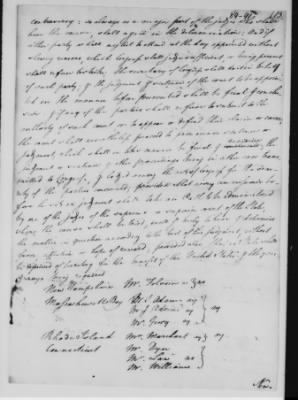 controversy: so always as a major part of the judges who shall
hear the cause, shall agree in the determination; And if
either party shall neglect to attend at the day appointed without
shewing reasons, which Congress shall judge sufficient, or being present
shall refuse to strike, the secretary of Congress shall strike in behalf
of such party; & the judgment & sentence of the court to be appoin-
ted in the manner before prescribed shall be final & conclu-
sive. & if any of the parties shall refuse to submit to the
authority of such court or to appear or defend their claim or cause,
the court shall nevertheless proceed to pronounce sentence or
judgment, which shall in like manner be final & the
judgment or sentence & other proceedings being in either case trans-
mitted to Congress, & lodged among the acts of Congress for the secu-
rity of the parties concerned; provided that every commissioner be-
fore he sits in judgment shall take an oath to be administered
by one of the judges of the supreme or superior court of the State,
where the cause shall be tried, well & truly to hear & determine
the matter in question according to the best of his judgment, without
favour, affection or hope of reward; provided also that no State shall
be deprived of territory for the benefit of the United States.
being required
New Hampshire Mr. Folsom ay
Massachusetts Bay Mr. S Adams ay
Mr. J Adams ay ay
Mr. Gerry ay
Rhode Island Mr. Marchant ay ay
Connecticut Mr. Dyer
Mr. Law
Mr. Williams
New